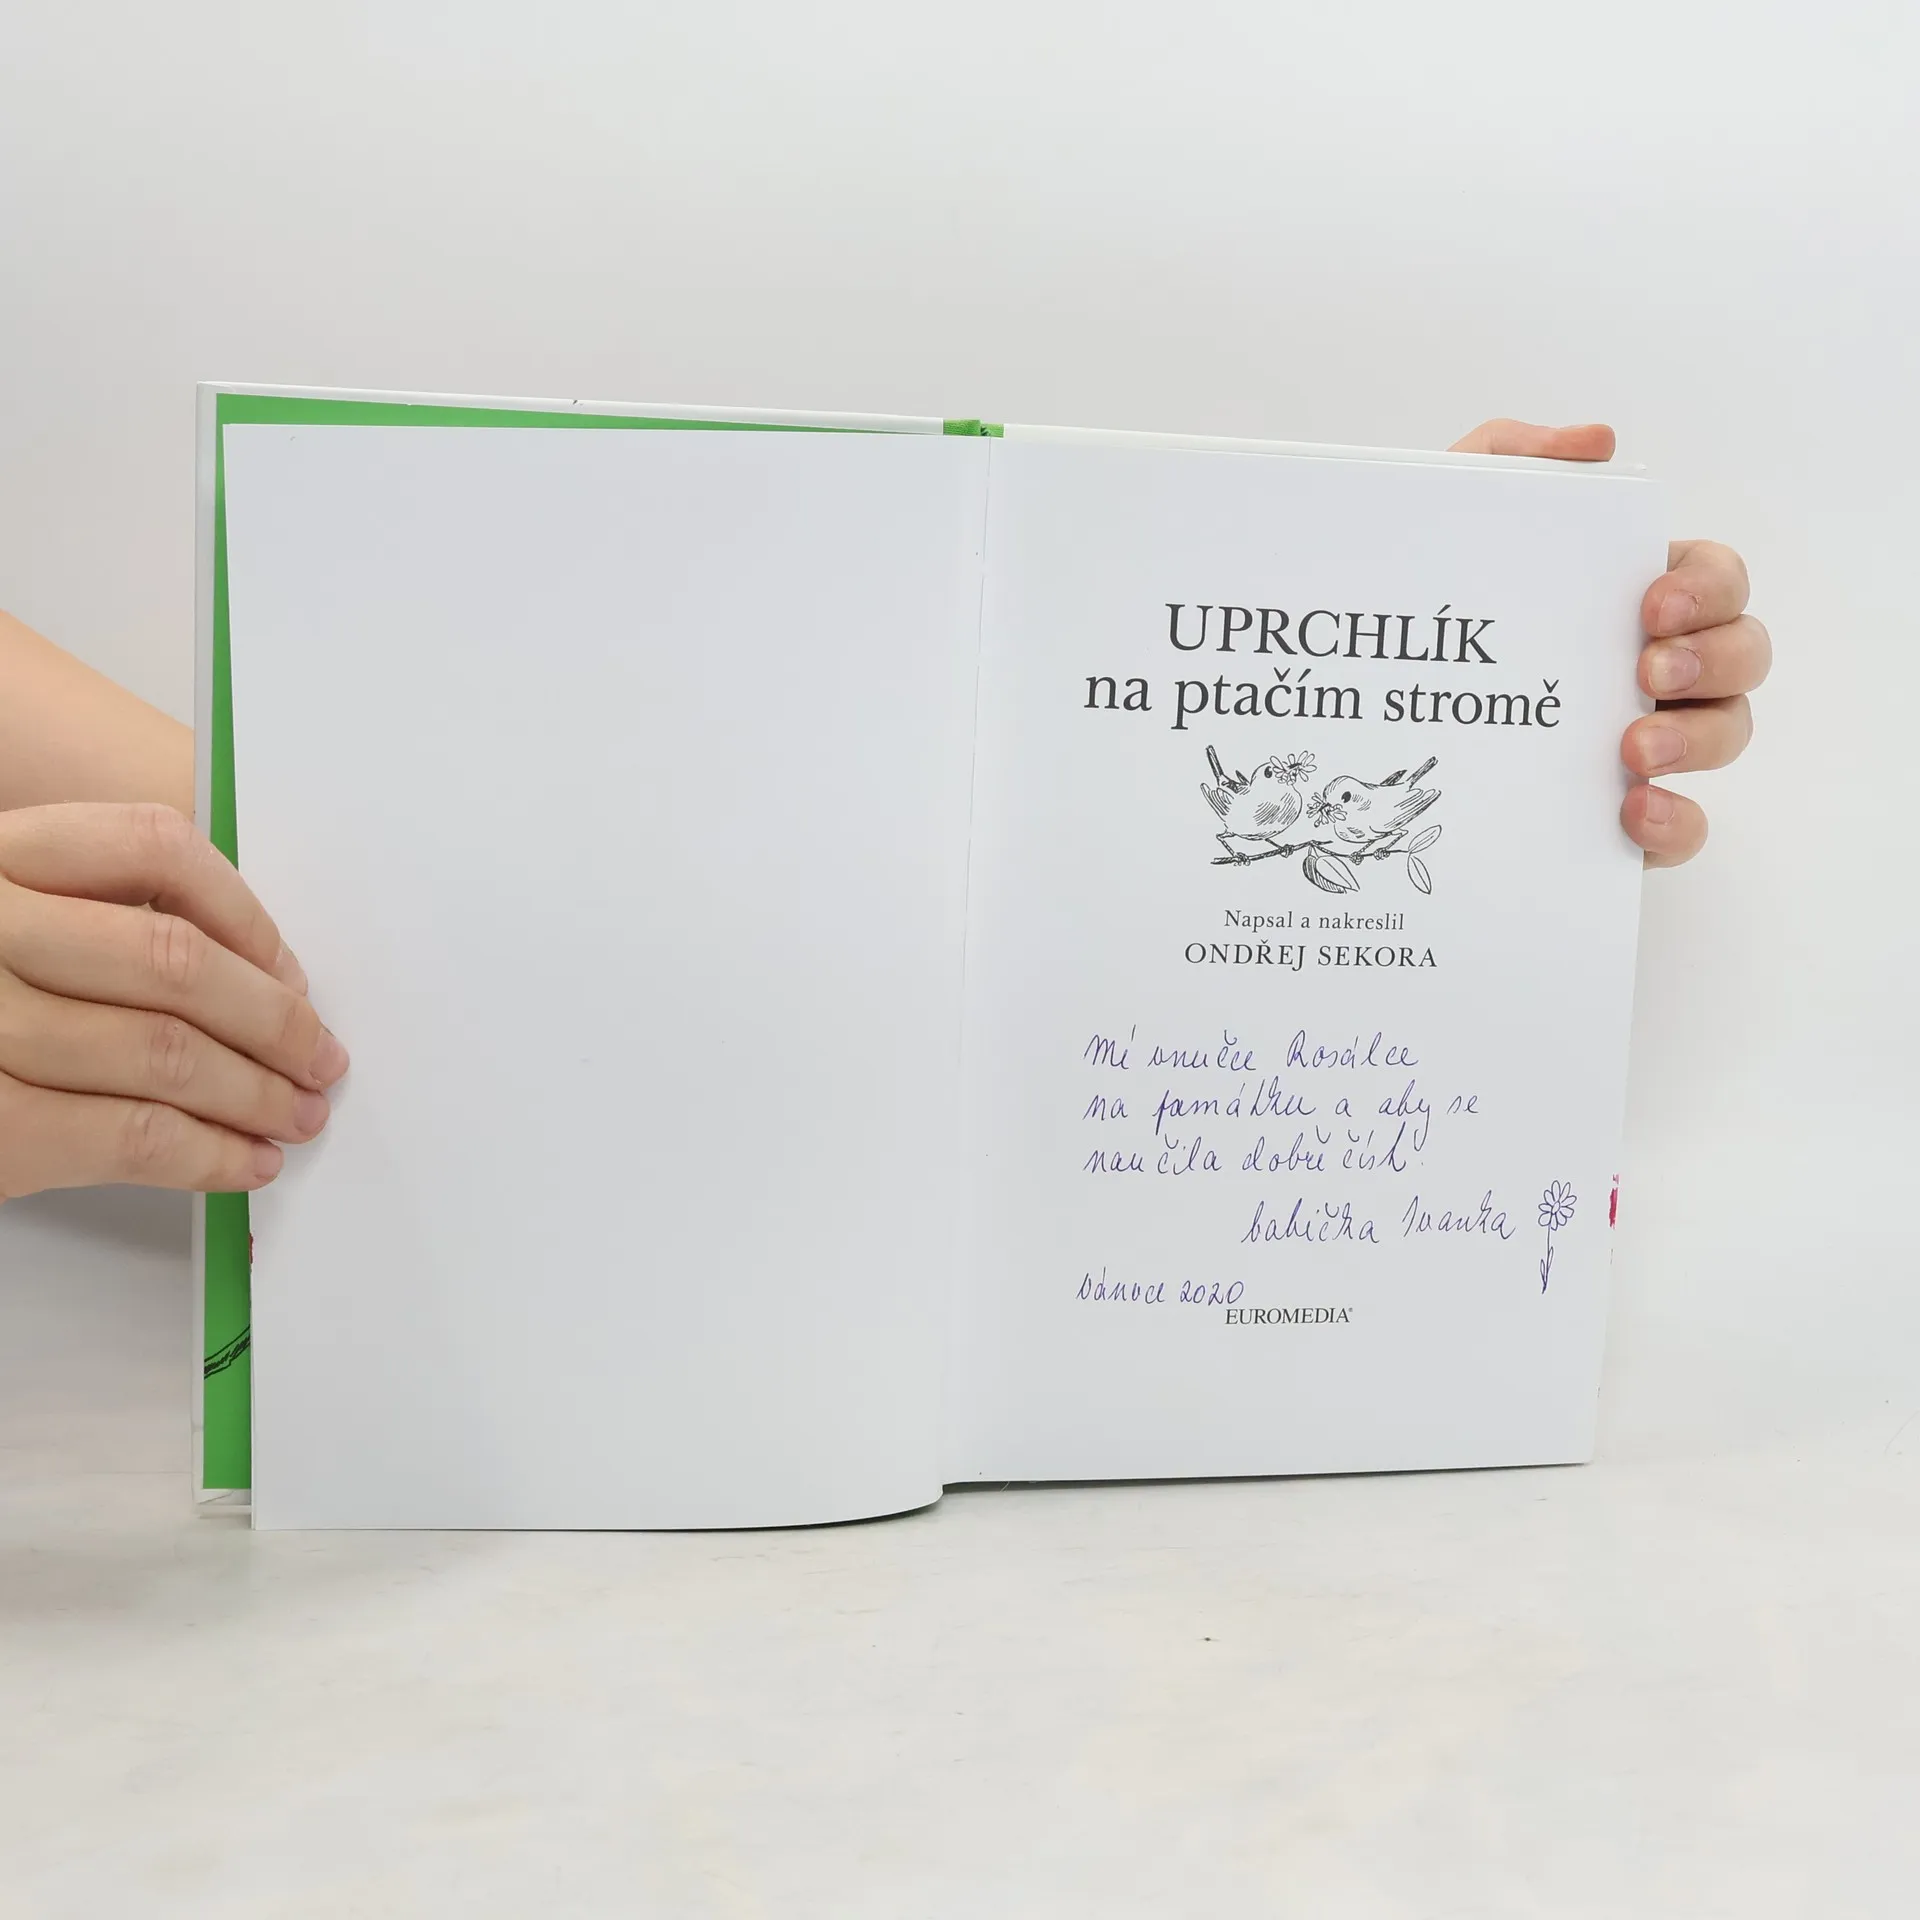 UPRCHLÍK
na ptačím stromě
Napsal a nakreslil
ONDŘEJ SEKORA
Mé vnučce Rosálce
na památku a aby se
naučila dobře číst.
babička Ivanka
Vánoce 2020
EUROMEDIA®